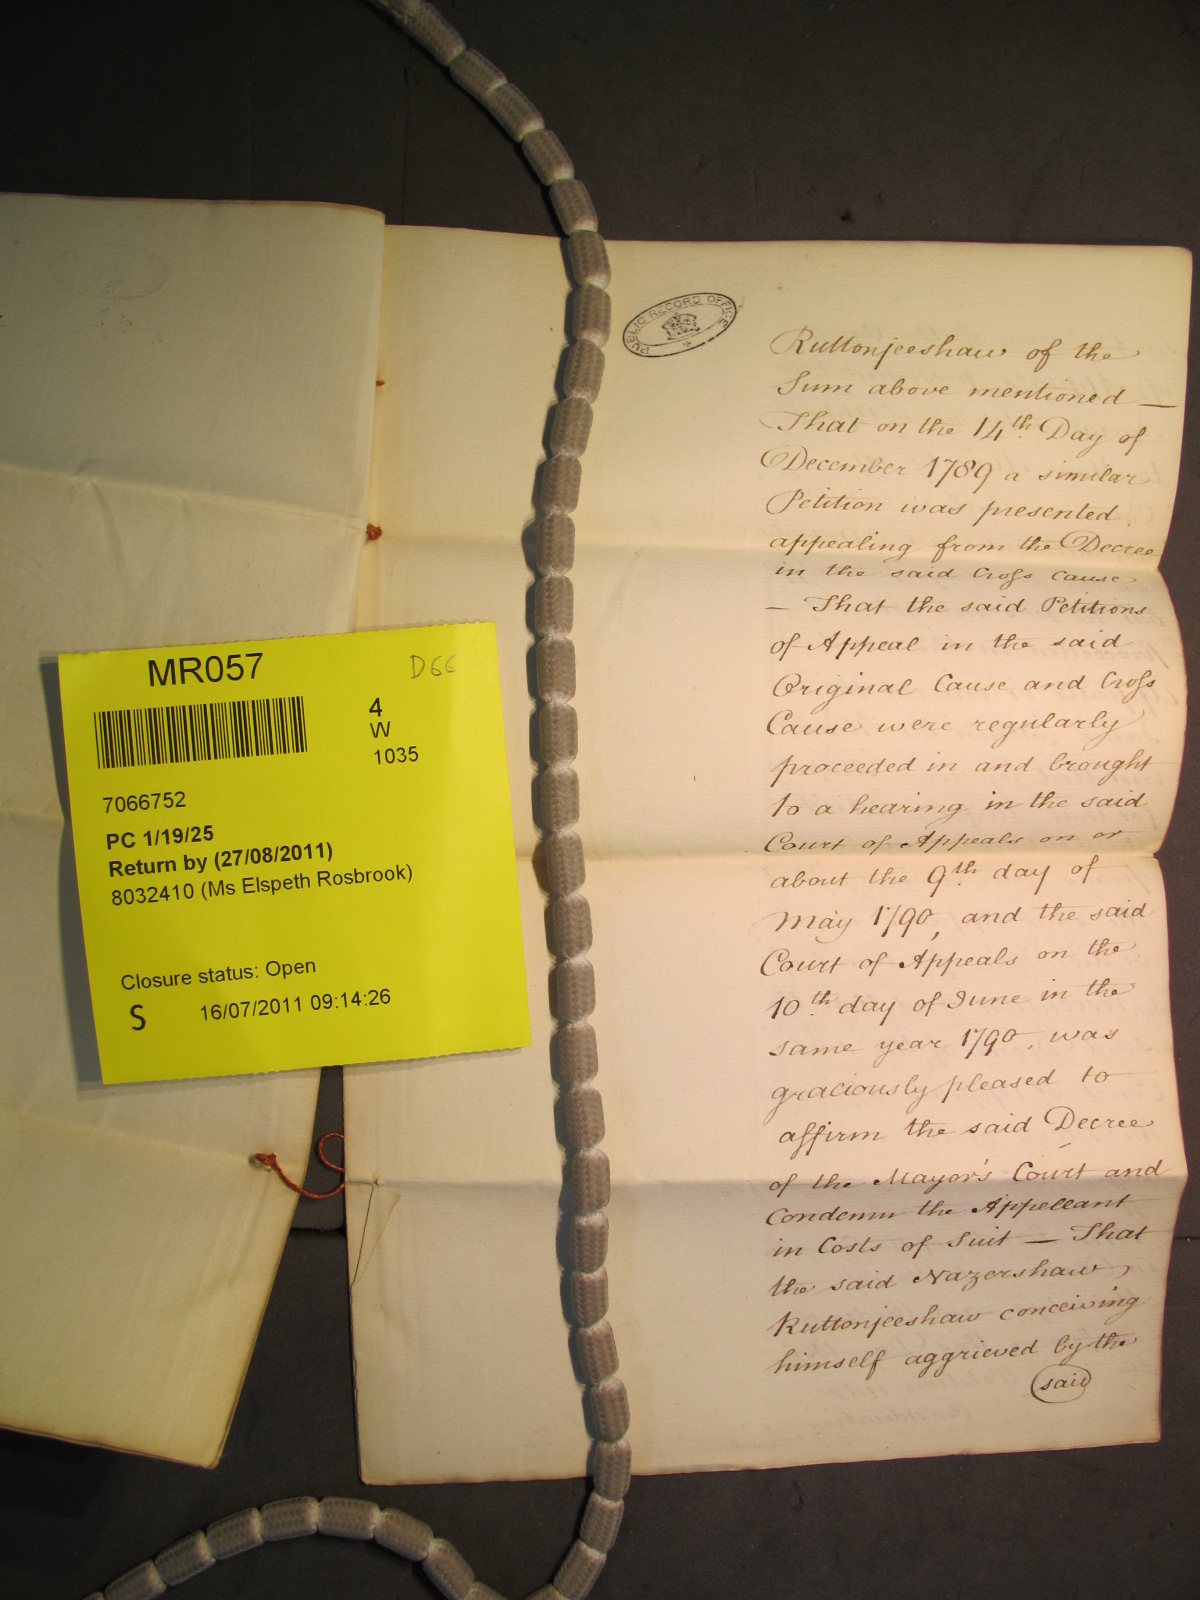 PUBLIC RECORD OFFICE
Ruttonjeeshaw of the
Sum above mentioned —
That on the 14th. Day of
December 1789 a similar
Petition was presented
appealing from the Decree
in the said Cross cause
— That the said Petitions
of Appeal in the said
Original Cause and Cross
Cause were regularly
proceeded in and brought
to a hearing in the said
Court of Appeals on or
about the 9th. day of
May 1790, and the said
Court of Appeals on the
10th. day of June in the
same year 1790, was
graciously pleased to
affirm the said Decree
of the Mayor's Court and
Condemn the Appellant
in Costs of Suit — That
the said Nazershaw,
Ruttonjeeshaw conceiving
himself aggrieved by the
said
MR057
D66
4
W
1035
7066752
PC 1/19/25
Return by (27/08/2011)
8032410 (Ms Elspeth Rosbrook)
Closure status: Open
S 16/07/2011 09:14:26